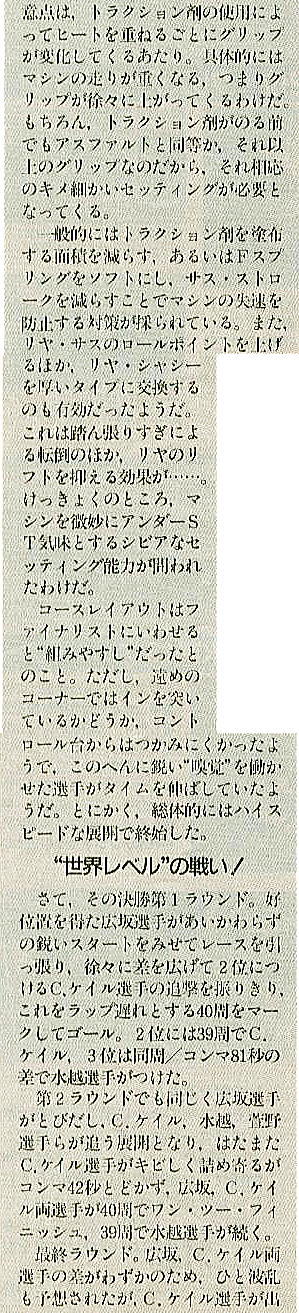 意点は，トラクション剤の使用によ
ってヒートを重ねるごとにグリップ
が変化してくるあたり。具体的には
マシンの走りが重くなる，つまりグ
リップが徐々に上がってくるわけだ。
もちろん，トラクション剤がのる前
でもアスファルトと同等か，それ以
上のグリップなのだから，それ相応
のキメ細かいセッティングが必要と
なってくる。
　一般的にはトラクション剤を塗布
する面積を減らす，あるいはFスプ
リングをソフトにし，サス・ストロ
ークを減らすことでマシンの失速を
防止する対策が採られている。また，
リヤ・サスのロールポイントを上げ
るほか，リヤ・シャシー
を厚いタイプに交換する
のも有効だったようだ。
これは踏ん張りすぎによ
る転倒のほか，リヤのリ
フトを抑える効果が……。
けっきょくのところ，マ
シンを微妙にアンダーS
T気味とするシビアなセ
ッティング能力が問われ
たわけだ。
　コースレイアウトはフ
ァイナリストにいわせる
と“組みやすし”だったと
のこと。ただし，遠めの
コーナーではインを突い
ているかどうか，コント
ロール台からはつかみにくかったよ
うで，このへんに鋭い“嗅覚”を働か
せた選手がタイムを伸ばしていたよ
うだ。とにかく，総体的にはハイス
ピードな展開で終始した。
“世界レベル”の戦い！
　さて，その決勝第1ラウンド。好
位置を得た広坂選手があいかわらず
の鋭いスタートをみせてレースを引
っ張り，徐々に差を広げて2位につ
けるC.ケイル選手の追撃を振りきり，
これをラップ遅れとする40周をマー
クしてゴール。2位には39周でC.
ケイル，3位は同周／コンマ81秒の
差で水越選手がつけた。
　第2ラウンドでも同じく広坂選手
がとびだし，C.ケイル，水越，菅野
選手らが追う展開となり，はたまた
C.ケイル選手がキビしく詰め寄るが
コンマ42秒とどかず，広坂，C.ケイ
ル両選手が40周でワン・ツー・フィ
ニッシュ，39周で水越選手が続く。
　最終ラウンド。広坂，C.ケイル両
選手の差がわずかのため，ひと波乱
も予想されたが，C.ケイル選手が出